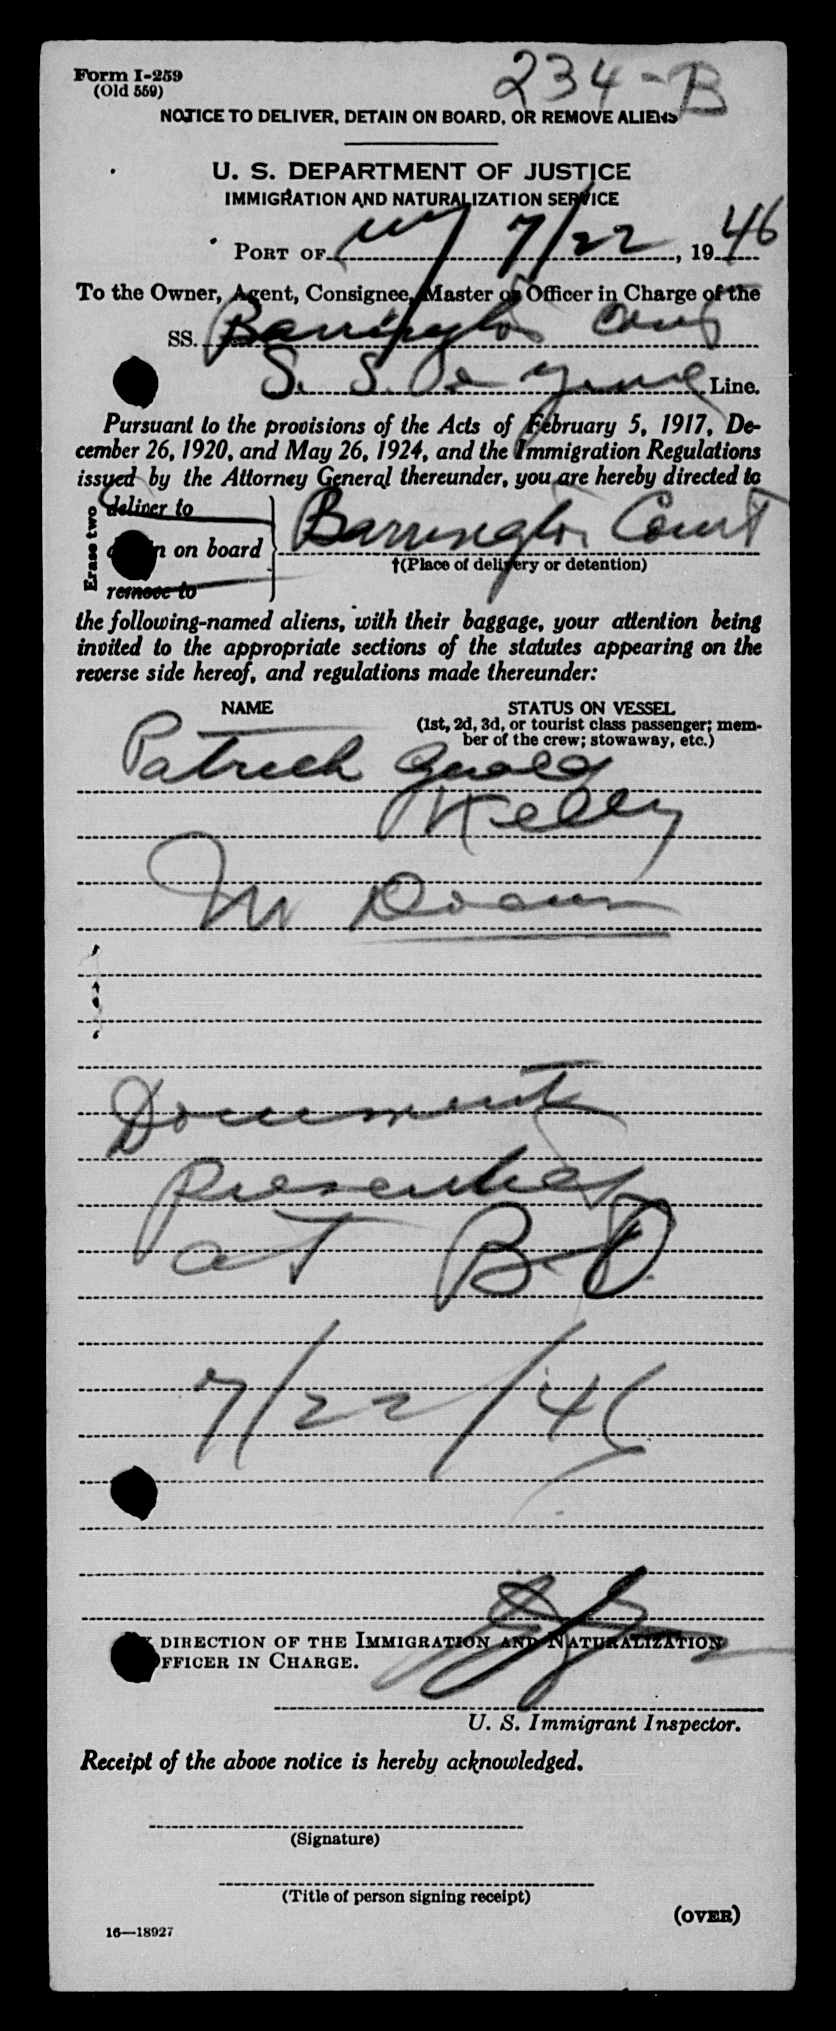 Form I-259
(Old 559)
234-B
NOTICE TO DELIVER, DETAIN ON BOARD, OR REMOVE ALIENS
U. S. DEPARTMENT OF JUSTICE
IMMIGRATION AND NATURALIZATION SERVICE
PORT OF NY 7/22, 1946
To the Owner, Agent, Consignee, Master or Officer in Charge of the
SS. Barrington Court
S. S. Line.
Pursuant to the provisions of the Acts of February 5, 1917, De-
cember 26, 1920, and May 26, 1924, and the Immigration Regulations
issued by the Attorney General thereunder, you are hereby directed to
Erase two
deliver to
on board
remove to
Barrington Court
†(Place of delivery or detention)
the following-named aliens, with their baggage, your attention being
invited to the appropriate sections of the statutes appearing on the
reverse side hereof, and regulations made thereunder:
NAME STATUS ON VESSEL
(1st, 2d, 3d, or tourist class passenger; mem-
ber of the crew; stowaway, etc.)
Patrick Gerald
Kelly
Document
Presented
at B-O
7/22/46
DIRECTION OF THE IMMIGRATION AND NATURALIZATION
OFFICER IN CHARGE.
U. S. Immigrant Inspector.
Receipt of the above notice is hereby acknowledged.
(Signature)
(Title of person signing receipt)
(OVER)
16—18927